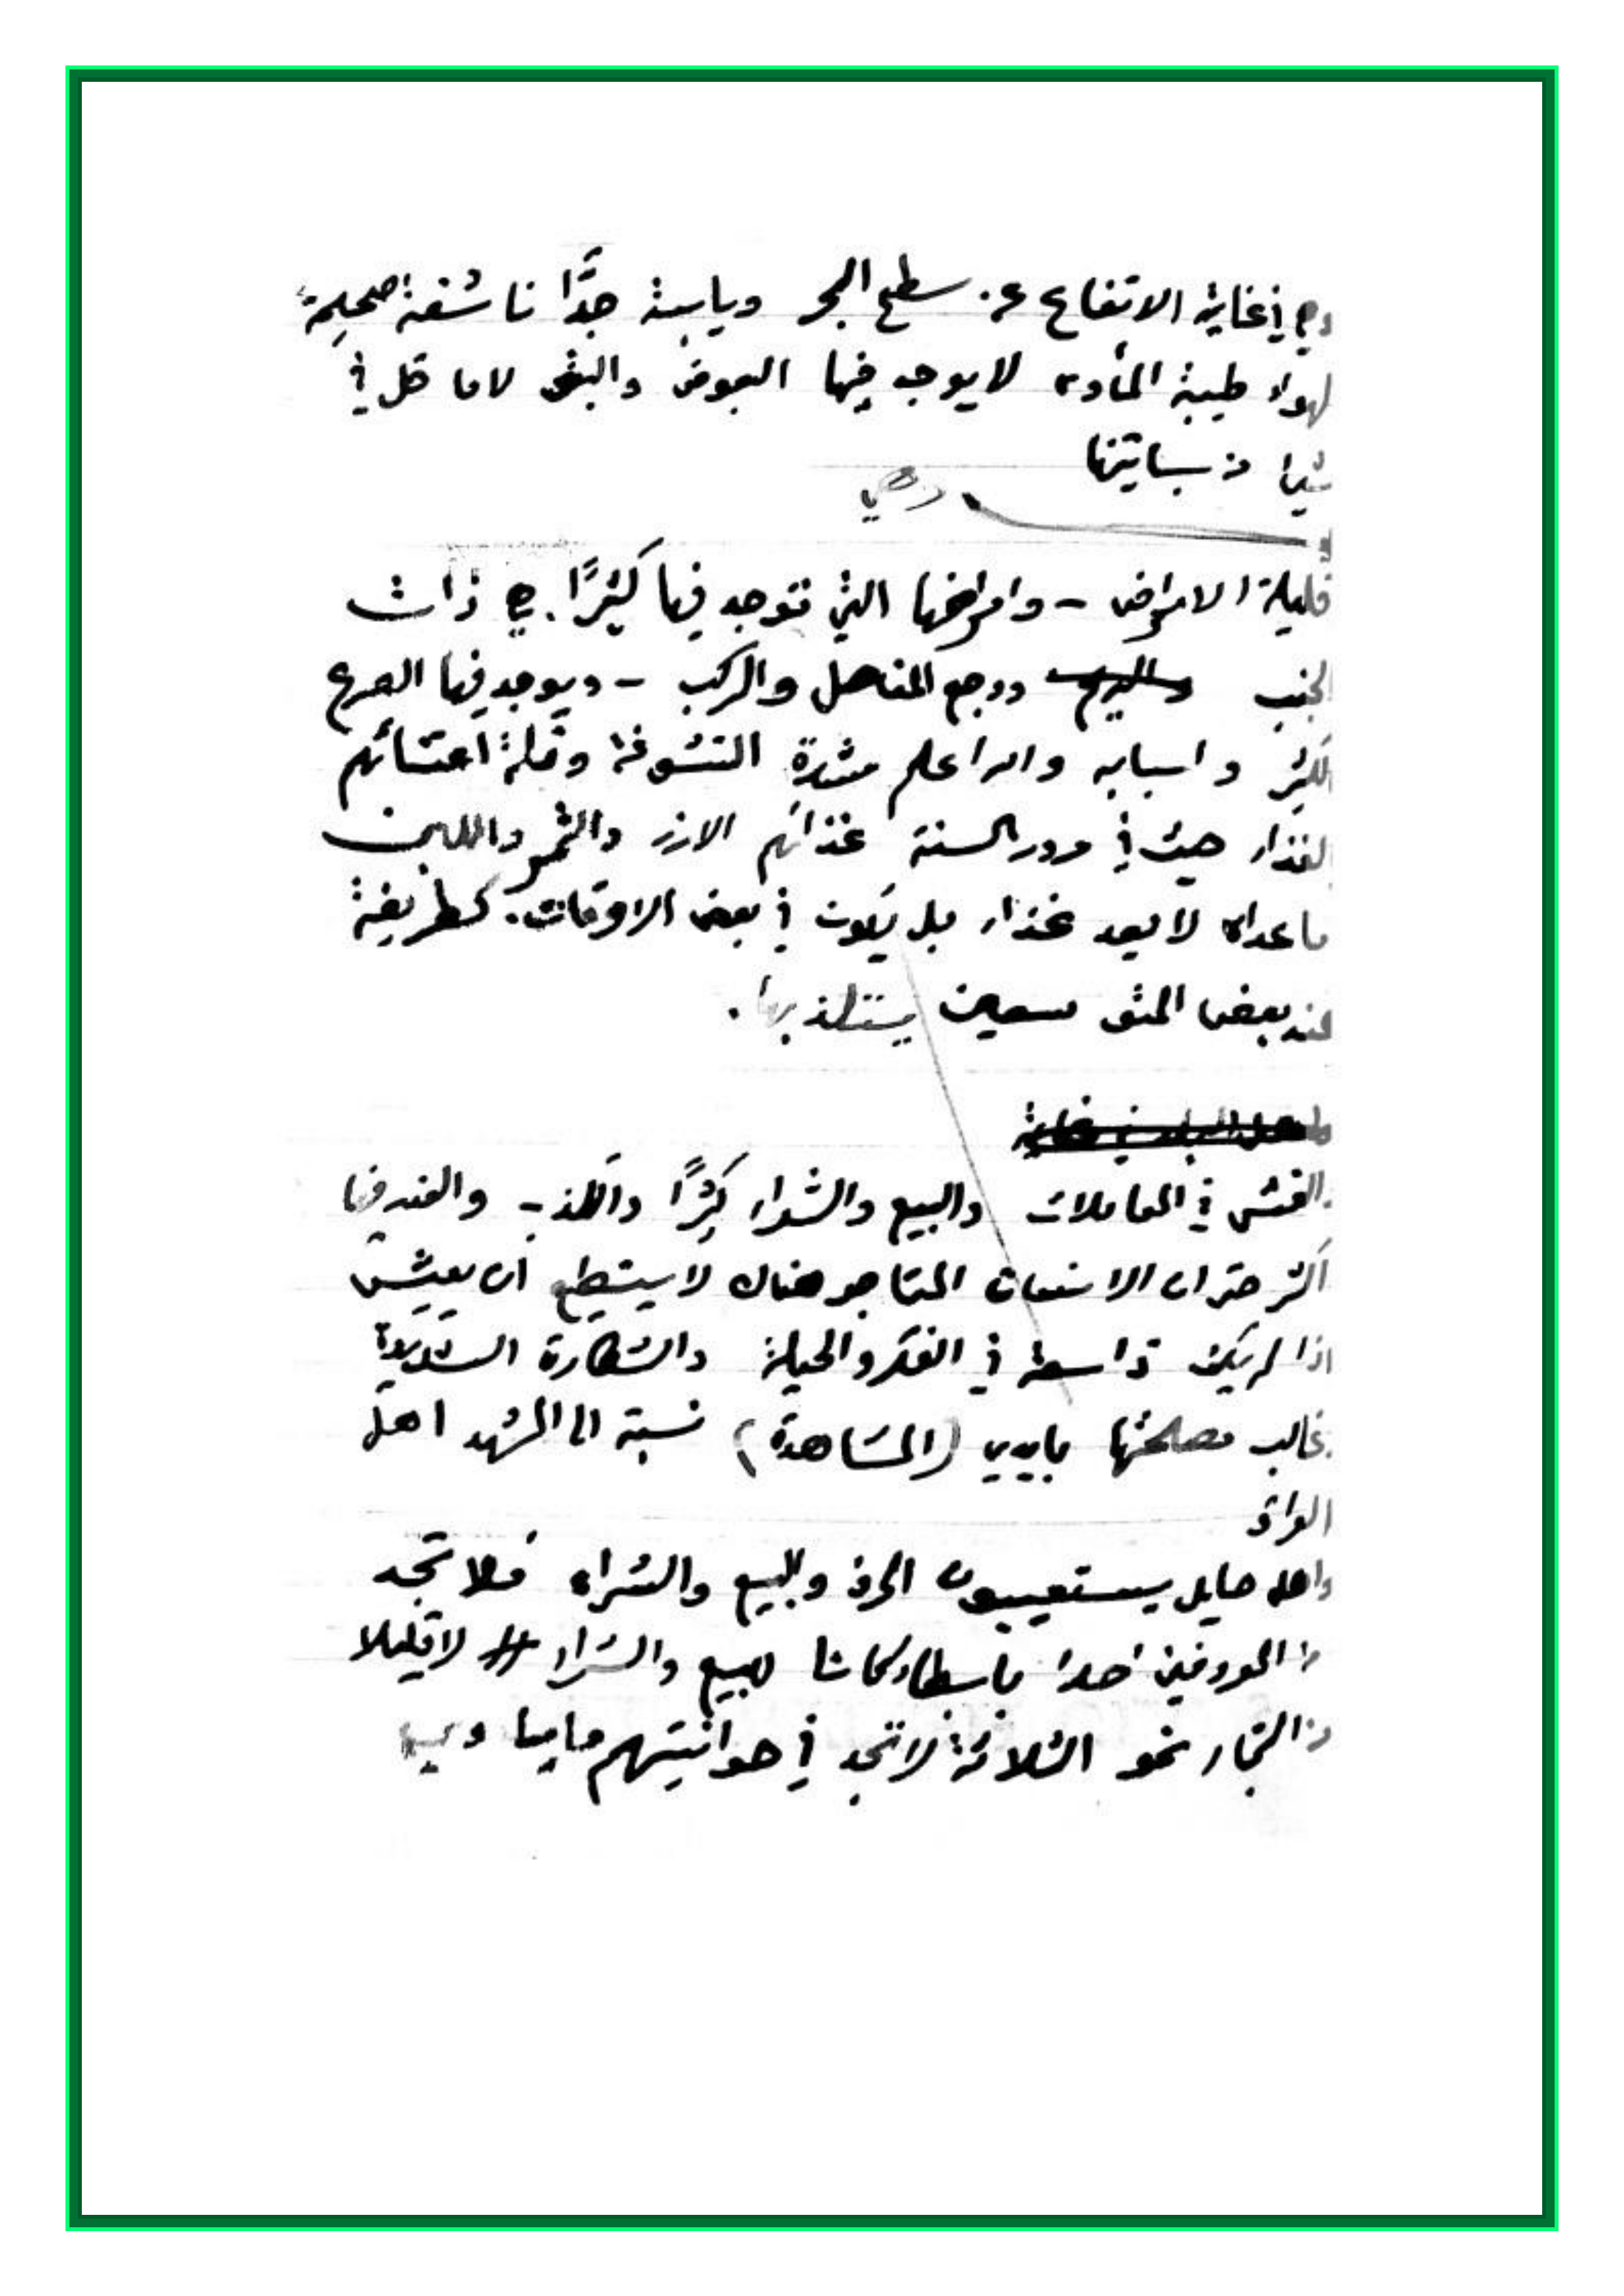 وهي في غاية الاتفاع عن سطح البحر ويابسة جدًّا ناشفة صحيحة
لهواء طيبة المأوى لا يوجد فيها البعوض والبق لاما قل في
بساتينها
وهي
قليلة الامراض - وامراضها التي توجد فيها كثيرًا. هي ذات
الجنب ووجع المفاصل والركب - ويوجد فيها الصرع
الكثير واسبابه والله اعلم شدة النشوفة وقلة اعتنائهم
الغذاء حيث في مدور السنة غذائهم الارز والتمر واللبن
ماعداه لا يعد غذاء بل يكون في بعض الاوقات. كطريفة
عند بعض يستلذ بها.
والغش في المعاملات والبيع والشراء كثيرًا والكذب - والغدر فيها
اكثر حتى ان الانسان المتاجر هناك لا يستطيع ان يعيش
اذا لم يكن ذا سعة في الفكر والحيلة والشطارة الشديدة
غالب مصلحتها بايدي (المشاهدة) نسبة الى المشهد اهل
العراق
واهل حايل يستعيبون الحرف والبيع والشراء فلا تجد
من المعروفين احدًا للبيع والشراء الا قليلا
من التجار نحو الثلاثة لا تجد في حوانيتهم